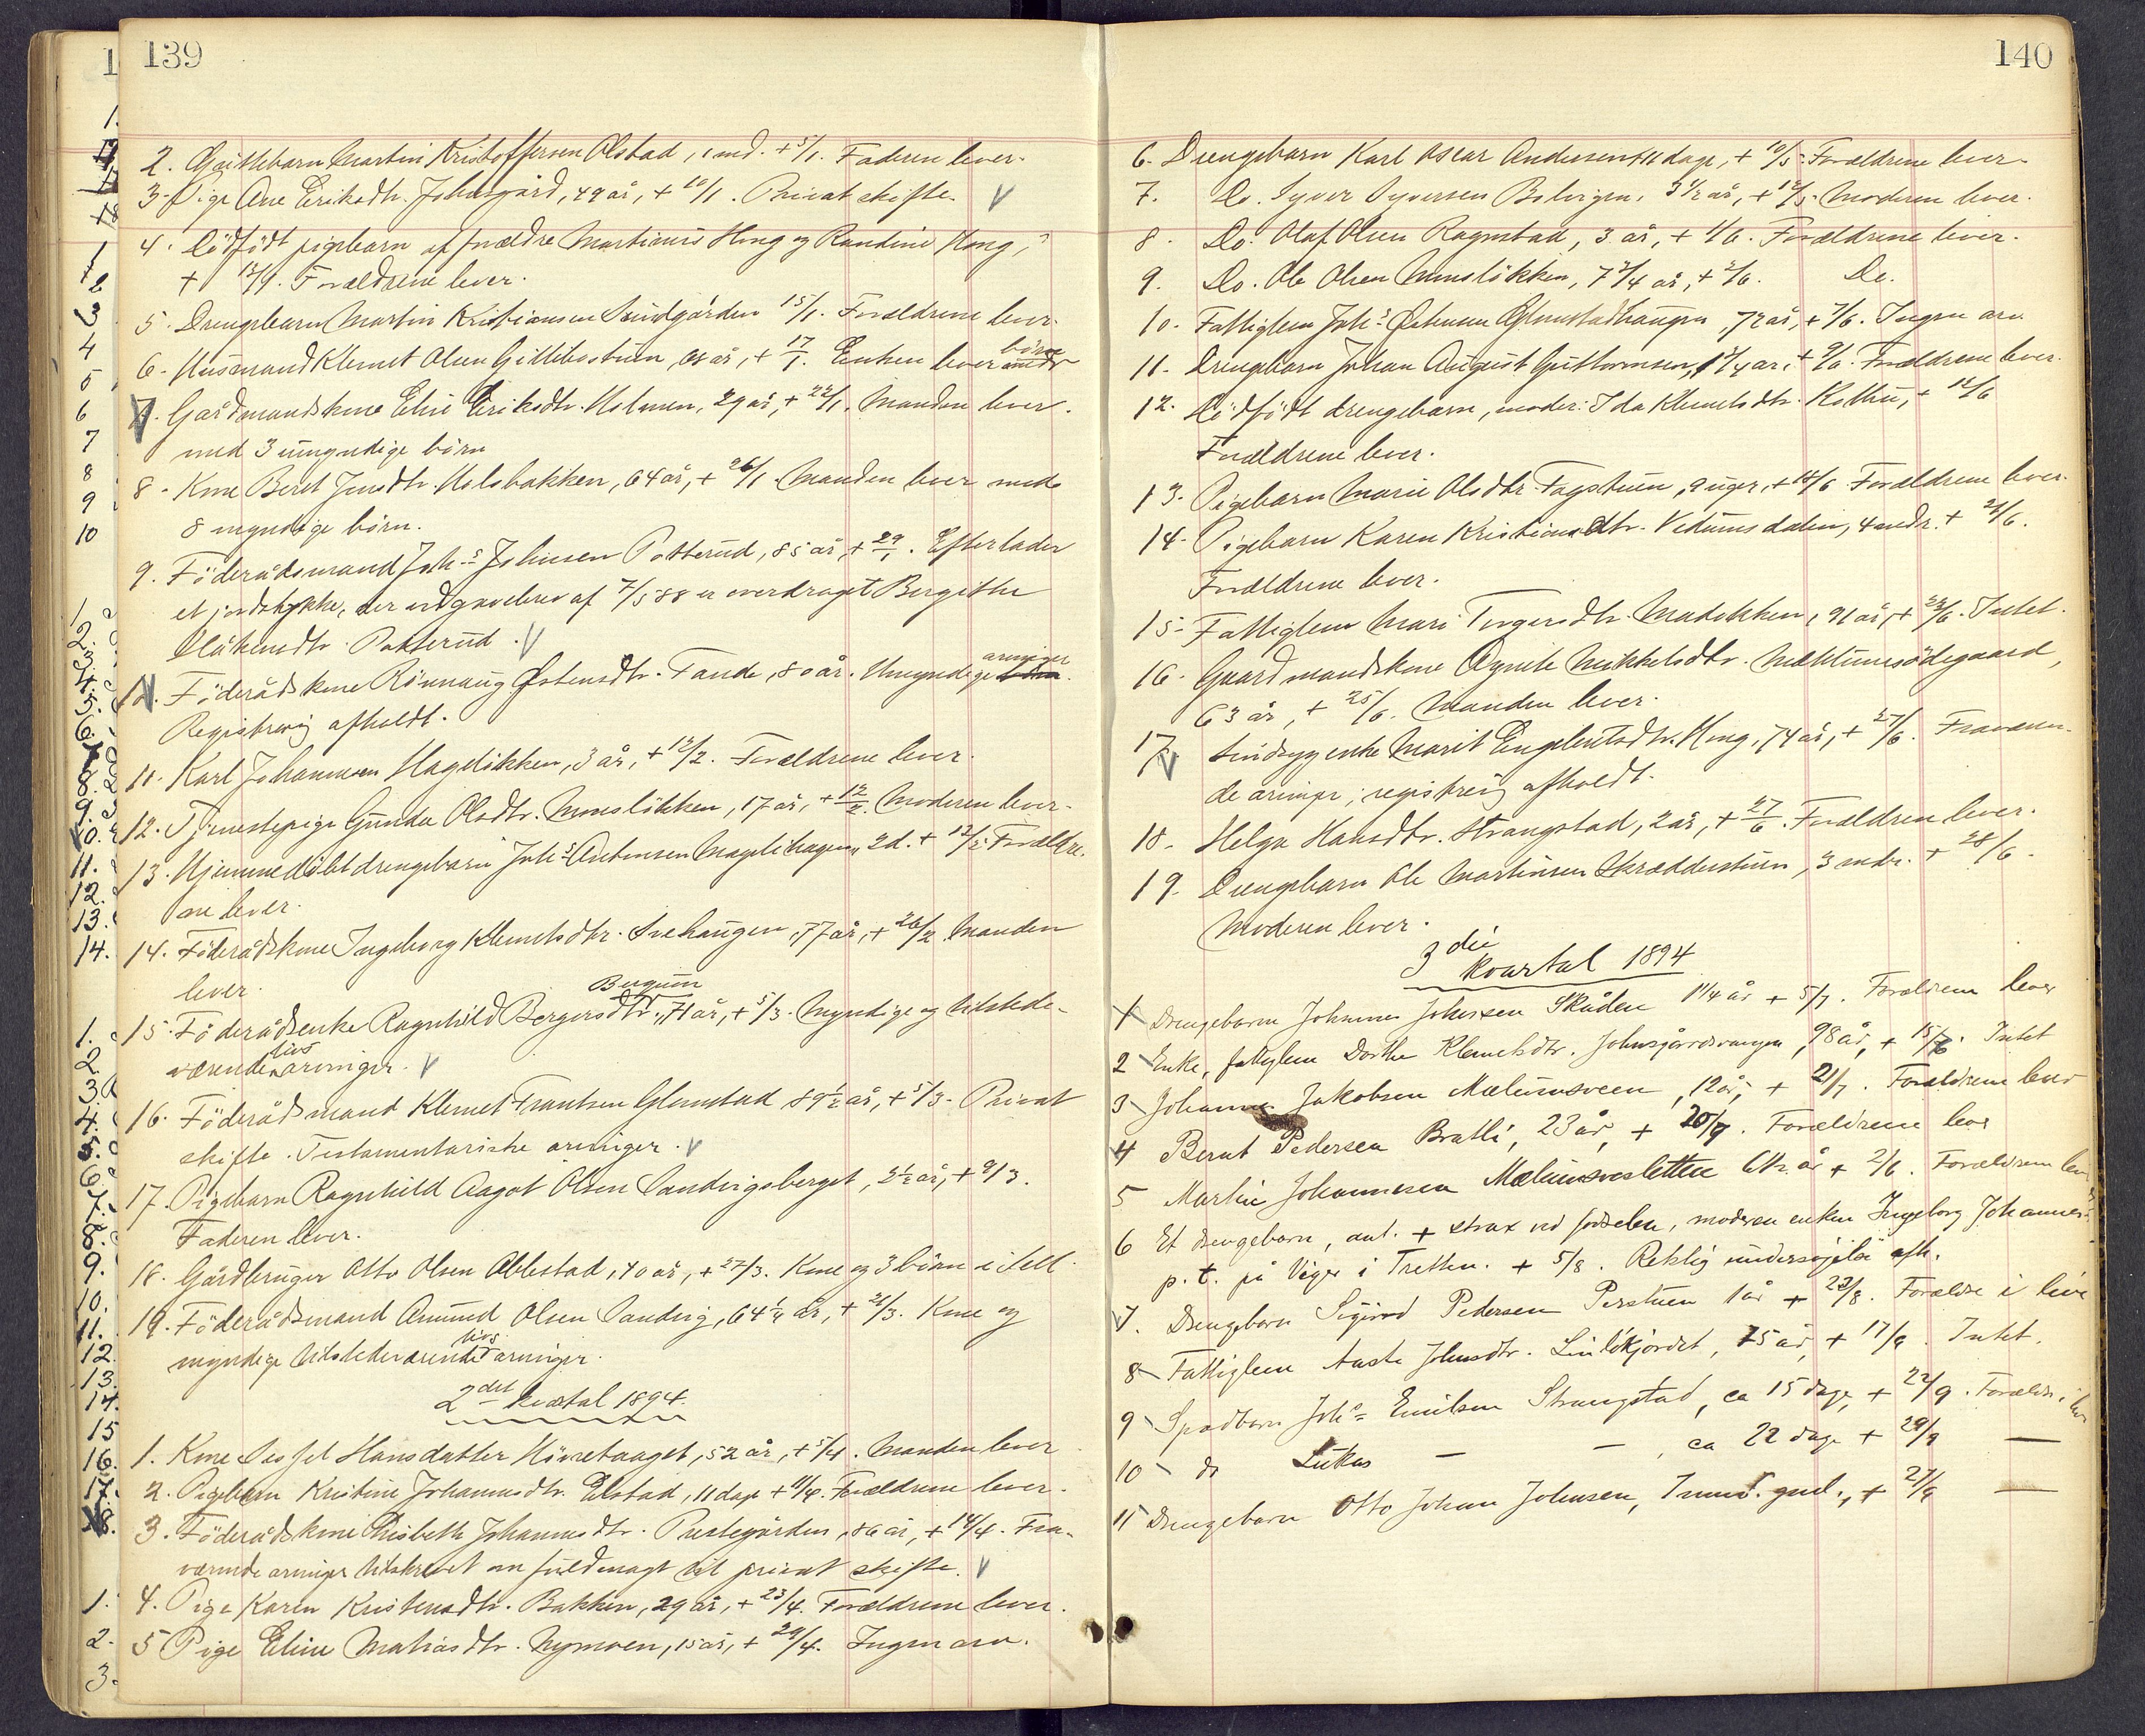 139
2. Guttebarn Martin Kristoffersen Olstad, 1 md. + 5/1. Faderen lever.
3. Pige Ane Eriksdtr. Johnsgård, 49 år, + 10/1. Privat skifte. V
4. Dödfödt pigebarn af forældre Martinus Hong og Randine Hong,
+ 13/1. Forældrene lever.
5. Drengebarn Martin Kristiansen Sundgården 15/1. Forældrene lever.
6. Husmand Klemet Olsen Gillibostuen, år, + 17/1. Enken lever börn
7. Gårdmandskone Eline Eriksdtr. Holmen, 29 år, + 22/1. Manden lever.
med 3 umyndige börn
8. Kone Beret Jensdtr. Holsbakken, 64 år, + 26/1. Manden lever med
8 myndige börn.
9. Föderådsmand Johs. Johnsen Potterud, 85 år, + 29/1. Efterlader
et jordstykke, der ved gavebrev af 7/5 88 er overdraget Bergithe
Håkensdtr. Potterud. V
10. Föderådskone Rönnaug Østensdtr. Fande, 80 år. Umyndige arvinger.
Registrering afholdt.
11. Karl Johannesen Hageløkken, 3 år, + 12/2. Forældrene lever.
12. Tjenestepige Gunda Olsdtr. Monsløkken, 17 år, + 12/2. Moderen lever.
13. Hjemmedöbt drengebarn Johs. Antonsen Magelihagen, 2 d. + 12/2. Forældre-
ne lever.
14. Föderådskone Ingeborg Klemetsdtr. Svehaugen, 77 år, + 26/2. Manden
lever.
Bergum
15. Föderådsenke Ragnhild Bergersdtr., 71 år, + 5/3. Myndige og tilstede-
værende livsarvinger. V
16. Föderådsmand Klemet Frantsen Glemstad 89 1/2 år, + 5/3. Privat
skifte. Testamentariske arvinger. V
17. Pigebarn Ragnhild Aagot Olsen Sandvigsberget, 2 1/2 år, + 9/3.
Faderen lever.
18. Gårdbruger Otto Olsen Ablestad, 40 år, + 27/3. Kone og 3 börn i live.
19. Föderådsmand Amund Olsen Sandvig, 64 1/4 år, + 21/3. Kone og
myndige tilstedeværende livsarvinger.
2det kvartal 1894.
1. Kone Sessel Hansdatter Hövretaaget, 52 år, + 5/4. Manden lever
2. Pigebarn Kristine Johannesdtr. Elstad, 11 dage + 11/4. Forældrene lever.
3. Föderådskone Lisbeth Johannesdtr. Prestegården, 86 år, + 14/4. Fra-
værende arvinger tilskrevet om fuldmagt til privat skifte. V
4. Pige Karen Kristensdtr. Bakken, 29 år, + 23/4. Forældrene lever.
5 Pige Eline Matiasdtr. Nymoen, 15 år, + 29/4. Ingen arv.
140
6. Drengebarn Karl Oscar Andersen 11 dage, + 10/5. Forældrene lever.
7. Do. Syver Syversen Bolvigen, 3 1/2 år, + 12/5. Moderen lever.
8. Do. Olaf Olsen Rognstad, 3 år, + 1/6. Forældrene lever.
9. Do. Ole Olsen Monsløkken, 7 3/4 år, + 2/6. Do.
10. Fattiglem Johs. Østensen Glemstadhaugen, 72 år, + 7/6. Ingen arv.
11. Drengebarn Johan August Guttormsen, 1 3/4 år, + 9/6. Forældrene lever.
12. Dödfödt drengebarn, moder: Ida Klemetsdtr. Kollin, + 12/6
Forældrene lever.
13. Pigebarn Marie Olsdtr. Fagstuen, 9 uger, + 18/6 Forældrene lever.
14. Pigebarn Karen Kristiansdtr. Vedumsdalen, 4 mdr. + 21/6.
Forældrene lever.
15. Fattiglem Mari Torgersdtr. Madokken, 91 år, + 23/6. Intet.
16. Gaardmandskone Agnete Mikkelsdtr. Mælumsödegaard,
63 år, + 25/6. Manden lever.
17. Sindsyg enke Marit Engebretsdtr. Hong, 74 år, + 27/6. Fraværen-
de arvinger; registrering afholdt.
18. Helga Hansdtr. Strangstad, 2 år, + 27/6. Forældrene lever.
19. Drengebarn Ole Martinsen Skrædderstuen, 3 mdr. + 28/6.
Moderen lever.
3die kvartal 1894
1 Drengebarn Johannes Johnsen Skåden 1 1/4 år + 5/7. Forældrene lever
2 Enke, fattiglem Dorthe Klemetsdtr. Johnsgårdsvangen, 98 år, + 15/7. Intet
3 Johannes Jakobsen Mælumsveen, 12 år, + 21/7. Forældrene lever
4 Bernt Pedersen Bratli, 23 år, + 20/7. Forældrene lever
5 Martin Johannesen Mælumsvesletten 6 1/2 år + 2/6. Forældrene lever
6 Et drengebarn, ant. + strax ved fødselen, moderen enken Ingeborg Johannes
p. t. på Viger i Tretten. + 5/8. Retslig undersøgelse afh.
7. Drengebarn Sigurd Pedersen Perstuen 1 år + 22/8. Forældre i live
8 Fattiglem Aaste Johnsdtr. Linlökjordet, 75 år, + 17/9. Intet.
9 Spædbarn Johs. Emilsen Strangstad, ca 15 dage, + 22/9. Forældre i live
10 do Lukas — — , ca 22 dage + 29/9 —
11 Drengebarn Otto Johan Johnsen, 7 mnd. gml., + 27/9 —